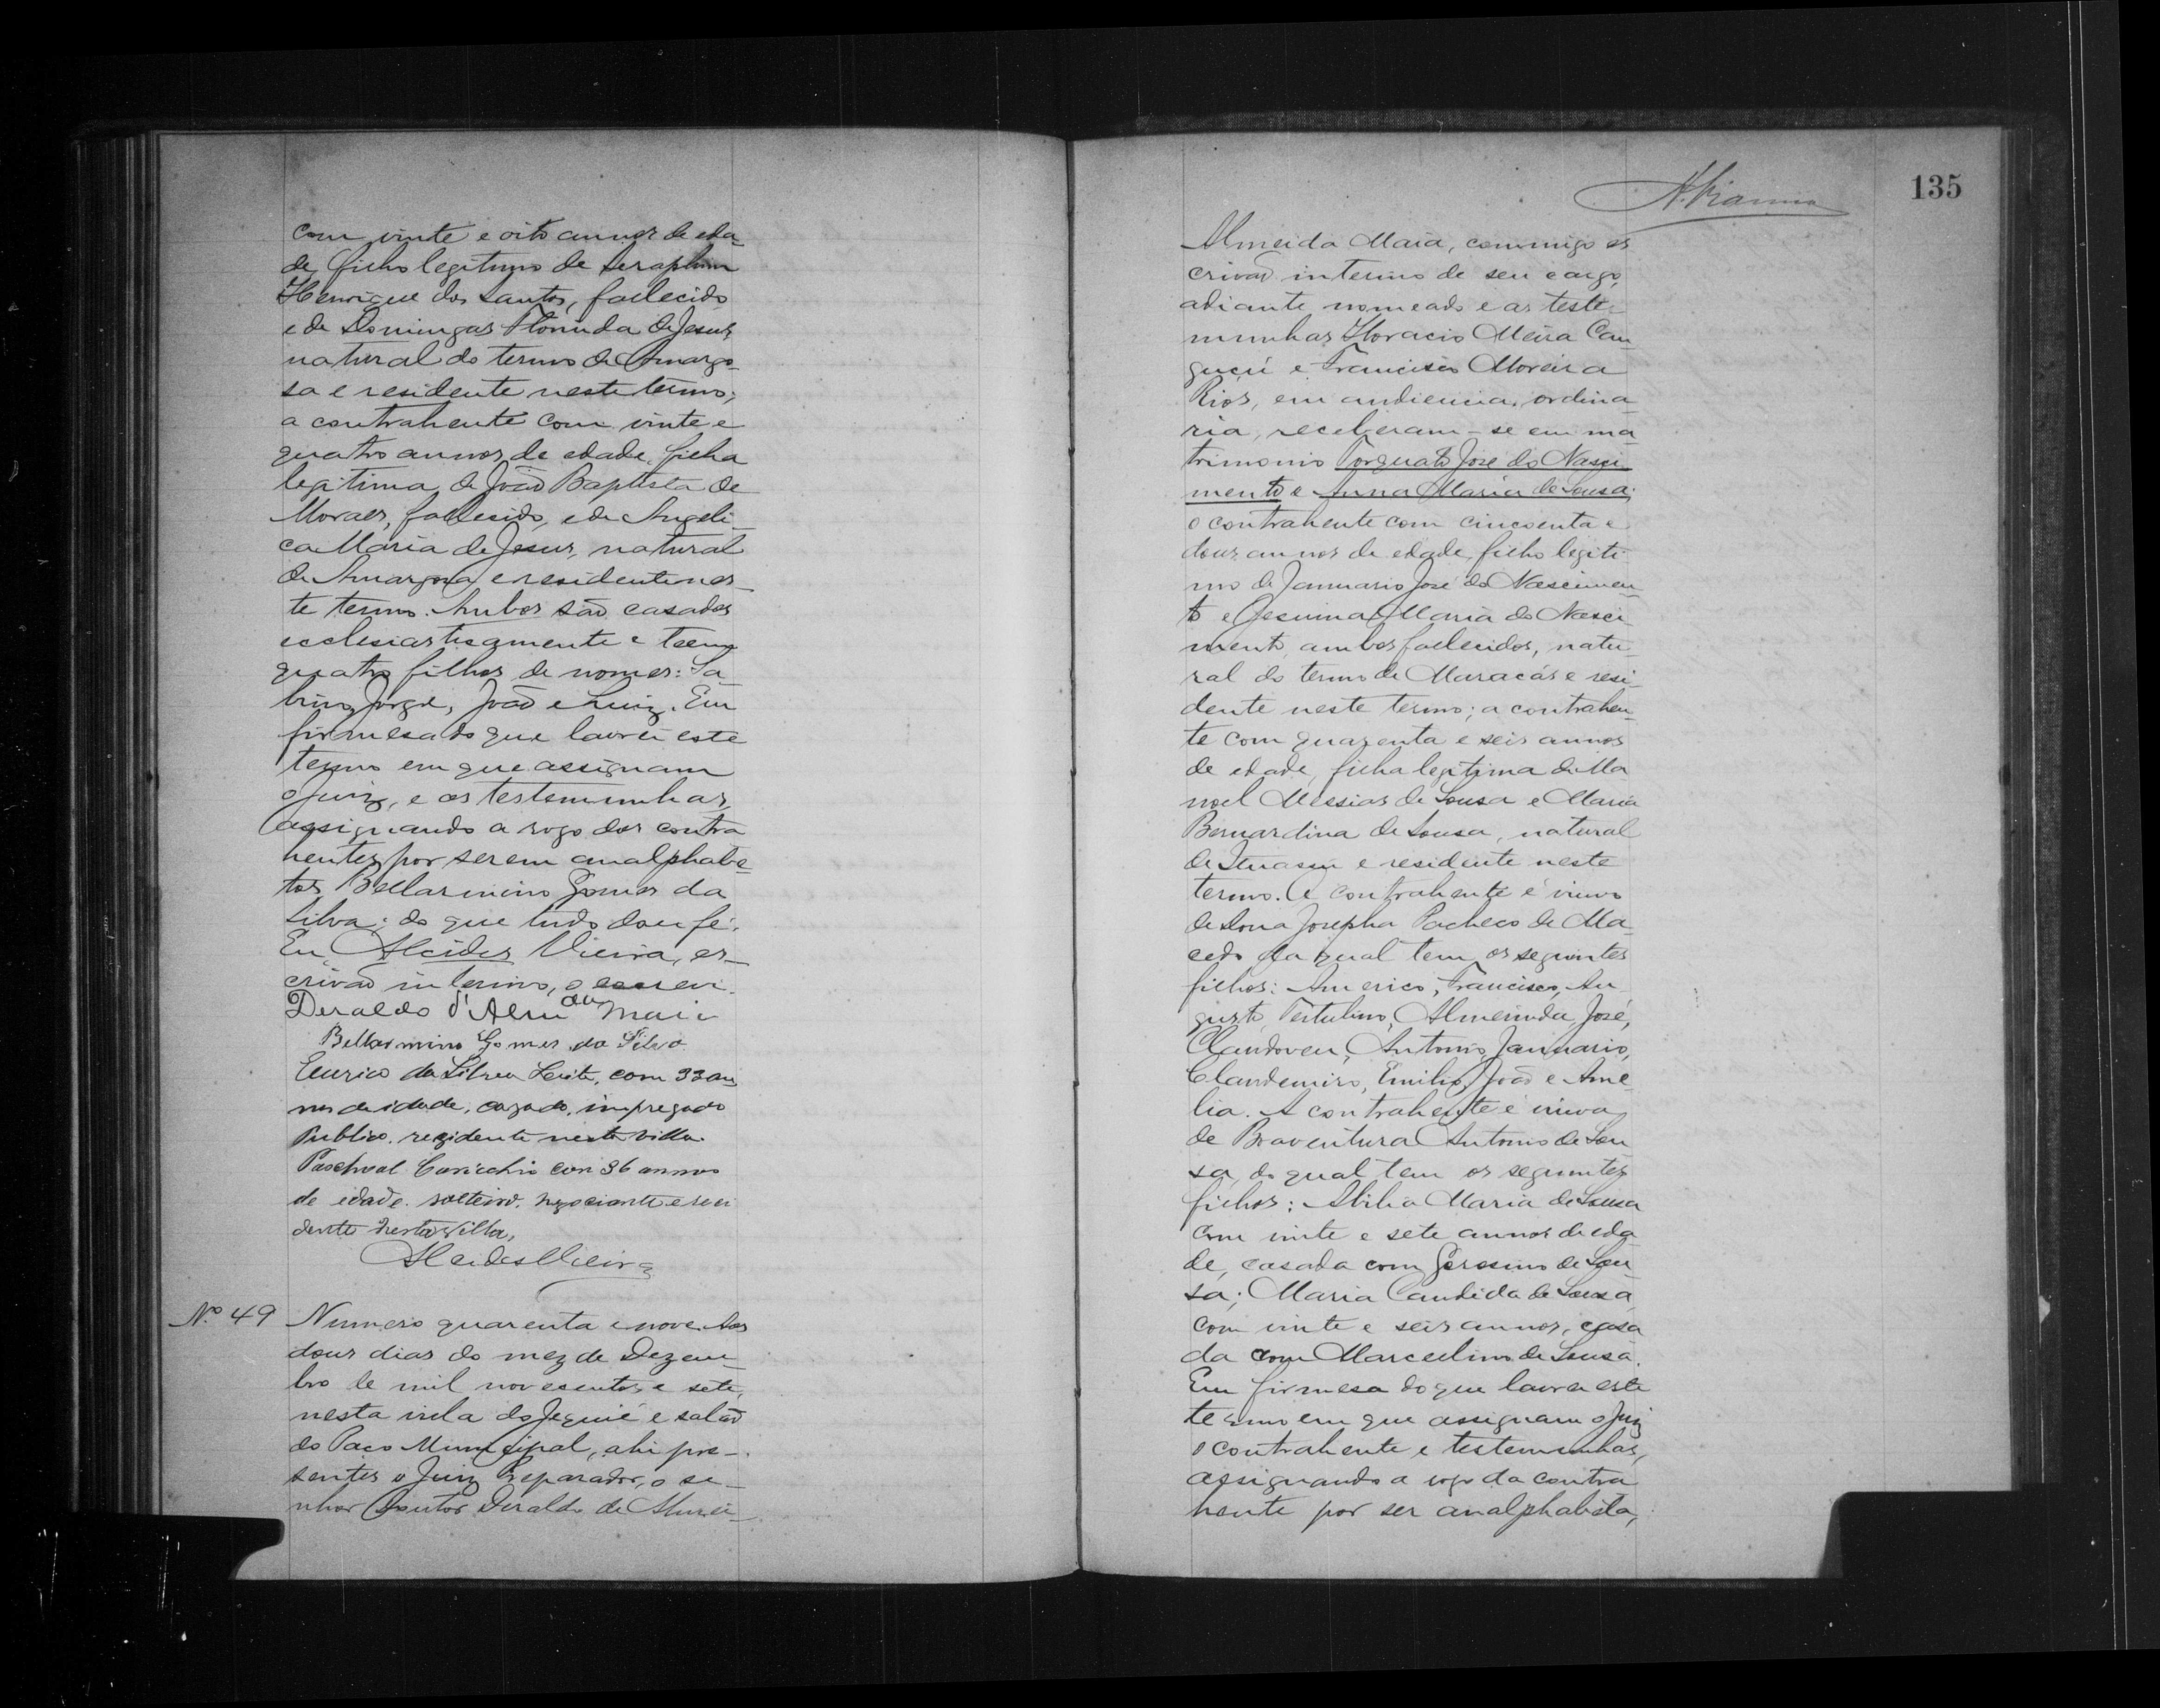 com vinte e oito annos de eda-
de, filho legitimo de Seraphim
Henrique dos Santos, fallecido
e de Domingas Florinda de Jesus,
natural do termo de Amargo-
sa e residente neste termo;
a contrahente com vinte e
quatro annos de edade, filha
legitima de João Baptista de
Moraes, fallecido, e de Angeli-
ca Maria de Jesus, natural
de Amargosa e residente nes-
te termo. Ambos são casados
ecclesiasticamente e teem
quatro filhos de nomes: Sa-
bino, Jorge, João e Luiz. Em
firmesa do que lavrei este
termo em que assignam
o Juiz, e as testemunhas,
assignando a rogo dos contra
hentes por serem analphabe-
tos Bellarmino Gomes da
Silva; do que tudo dou fé.
Eu Alcides Vieira, es-
crivão interino, o escrevi.
Deraldo d'Almda Maia
Bellarmino Gomes da Silva
Eurico da Silva Leite, com 33 an
nos de idade, cazado, impregado
Publico, rezidente nesta villa.
Paschoal Caricchio con 36 annos
de edade, solteiro, negociante e resi
dente nesta Villa,
Alcides Vieira
Nº 49 Numero quarenta e nove. Aos
dous dias do mez de Dezem-
bro de mil novescentos e sete,
nesta villa do Jequié e salão
do Paço Municipal, ahi pre-
sentes o Juiz Preparador, o se-
nhor Doutor Deraldo de Almei-
135
Almeida Maia, commigo es
crivão interino de seu cargo,
adiante nomeado e as teste-
munhas Horacio Meira Can
guçú e Francisco Moreira
Rios, em audiencia ordina-
ria, receberam-se em ma-
trimonio Torquato José do Nasci-
mento e Anna Maria de Sousa;
o contrahente com cincoenta e
dous annos de edade, filho legiti-
mo de Januario José do Nascimen-
to e Jesuina Maria do Nasci-
mento, ambos fallecidos, natu-
ral do termo de Maracás e resi-
dente neste termo; a contrahen-
te com quarenta e seis annos
de edade, filha legitima de Ma
noel Messias de Sousa e Maria
Bernardina de Sousa, natural
de Ituassu e residente neste
termo. O contrahente é viuvo
de Dona Josepha Pacheco de Ma-
cedo da qual tem os seguintes
filhos: Americo, Francisco, Au-
gusto, Tertulino, Almerinda, José,
Antonio, Januario,
Claudemiro, Emilio, João e Ame-
lia. A contrahente é viuva
de Boaventura Antonio de Sou
sa, do qual tem os seguintes
filhos: Abilia Maria de Sousa
com vinte e sete annos de eda
de, casada com de Sou-
sa; Maria Candida de Sousa,
com vinte e seis annos, casa
da com Marcelino de Sousa.
Em firmesa do que lavrei este
termo em que assignam o Juiz
o contrahente e testemunhas,
assignando a rogo da contra
hente por ser analphabeta,